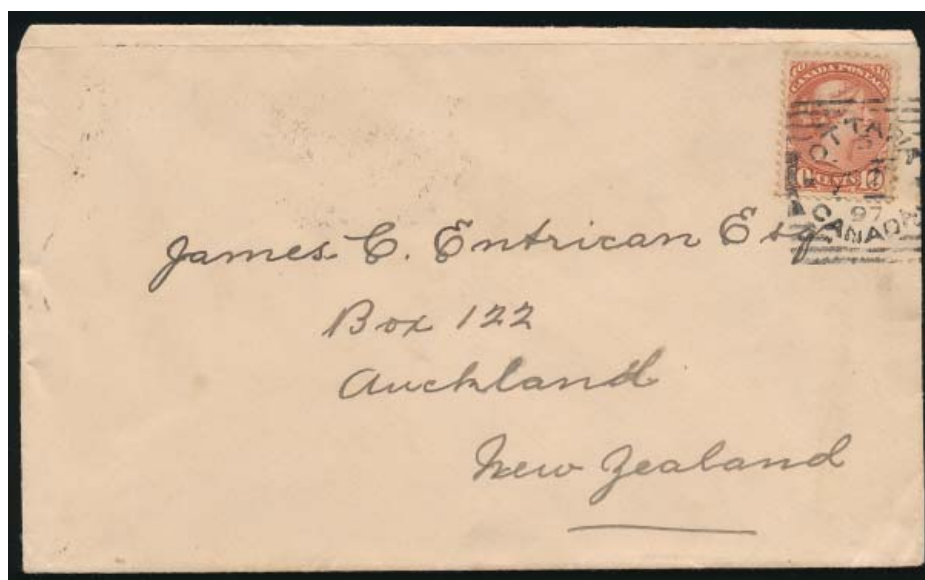 CANADA POSTAGE
OTTAWA
97
CANADA
James C. Entrican Esq
Box 122
Auckland
New Zealand